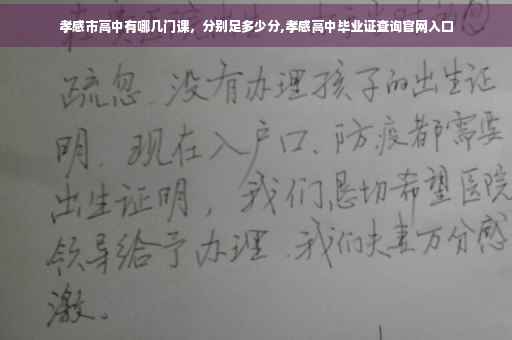 孝感市高中有哪几门课，分别是多少分,孝感高中毕业证查询官网入口
疏忽、没有办理孩子的出生证
明。现在入户口、防疫都需要
出生证明，我们恳切希望医院
领导给予办理、我们夫妻万分感
激。